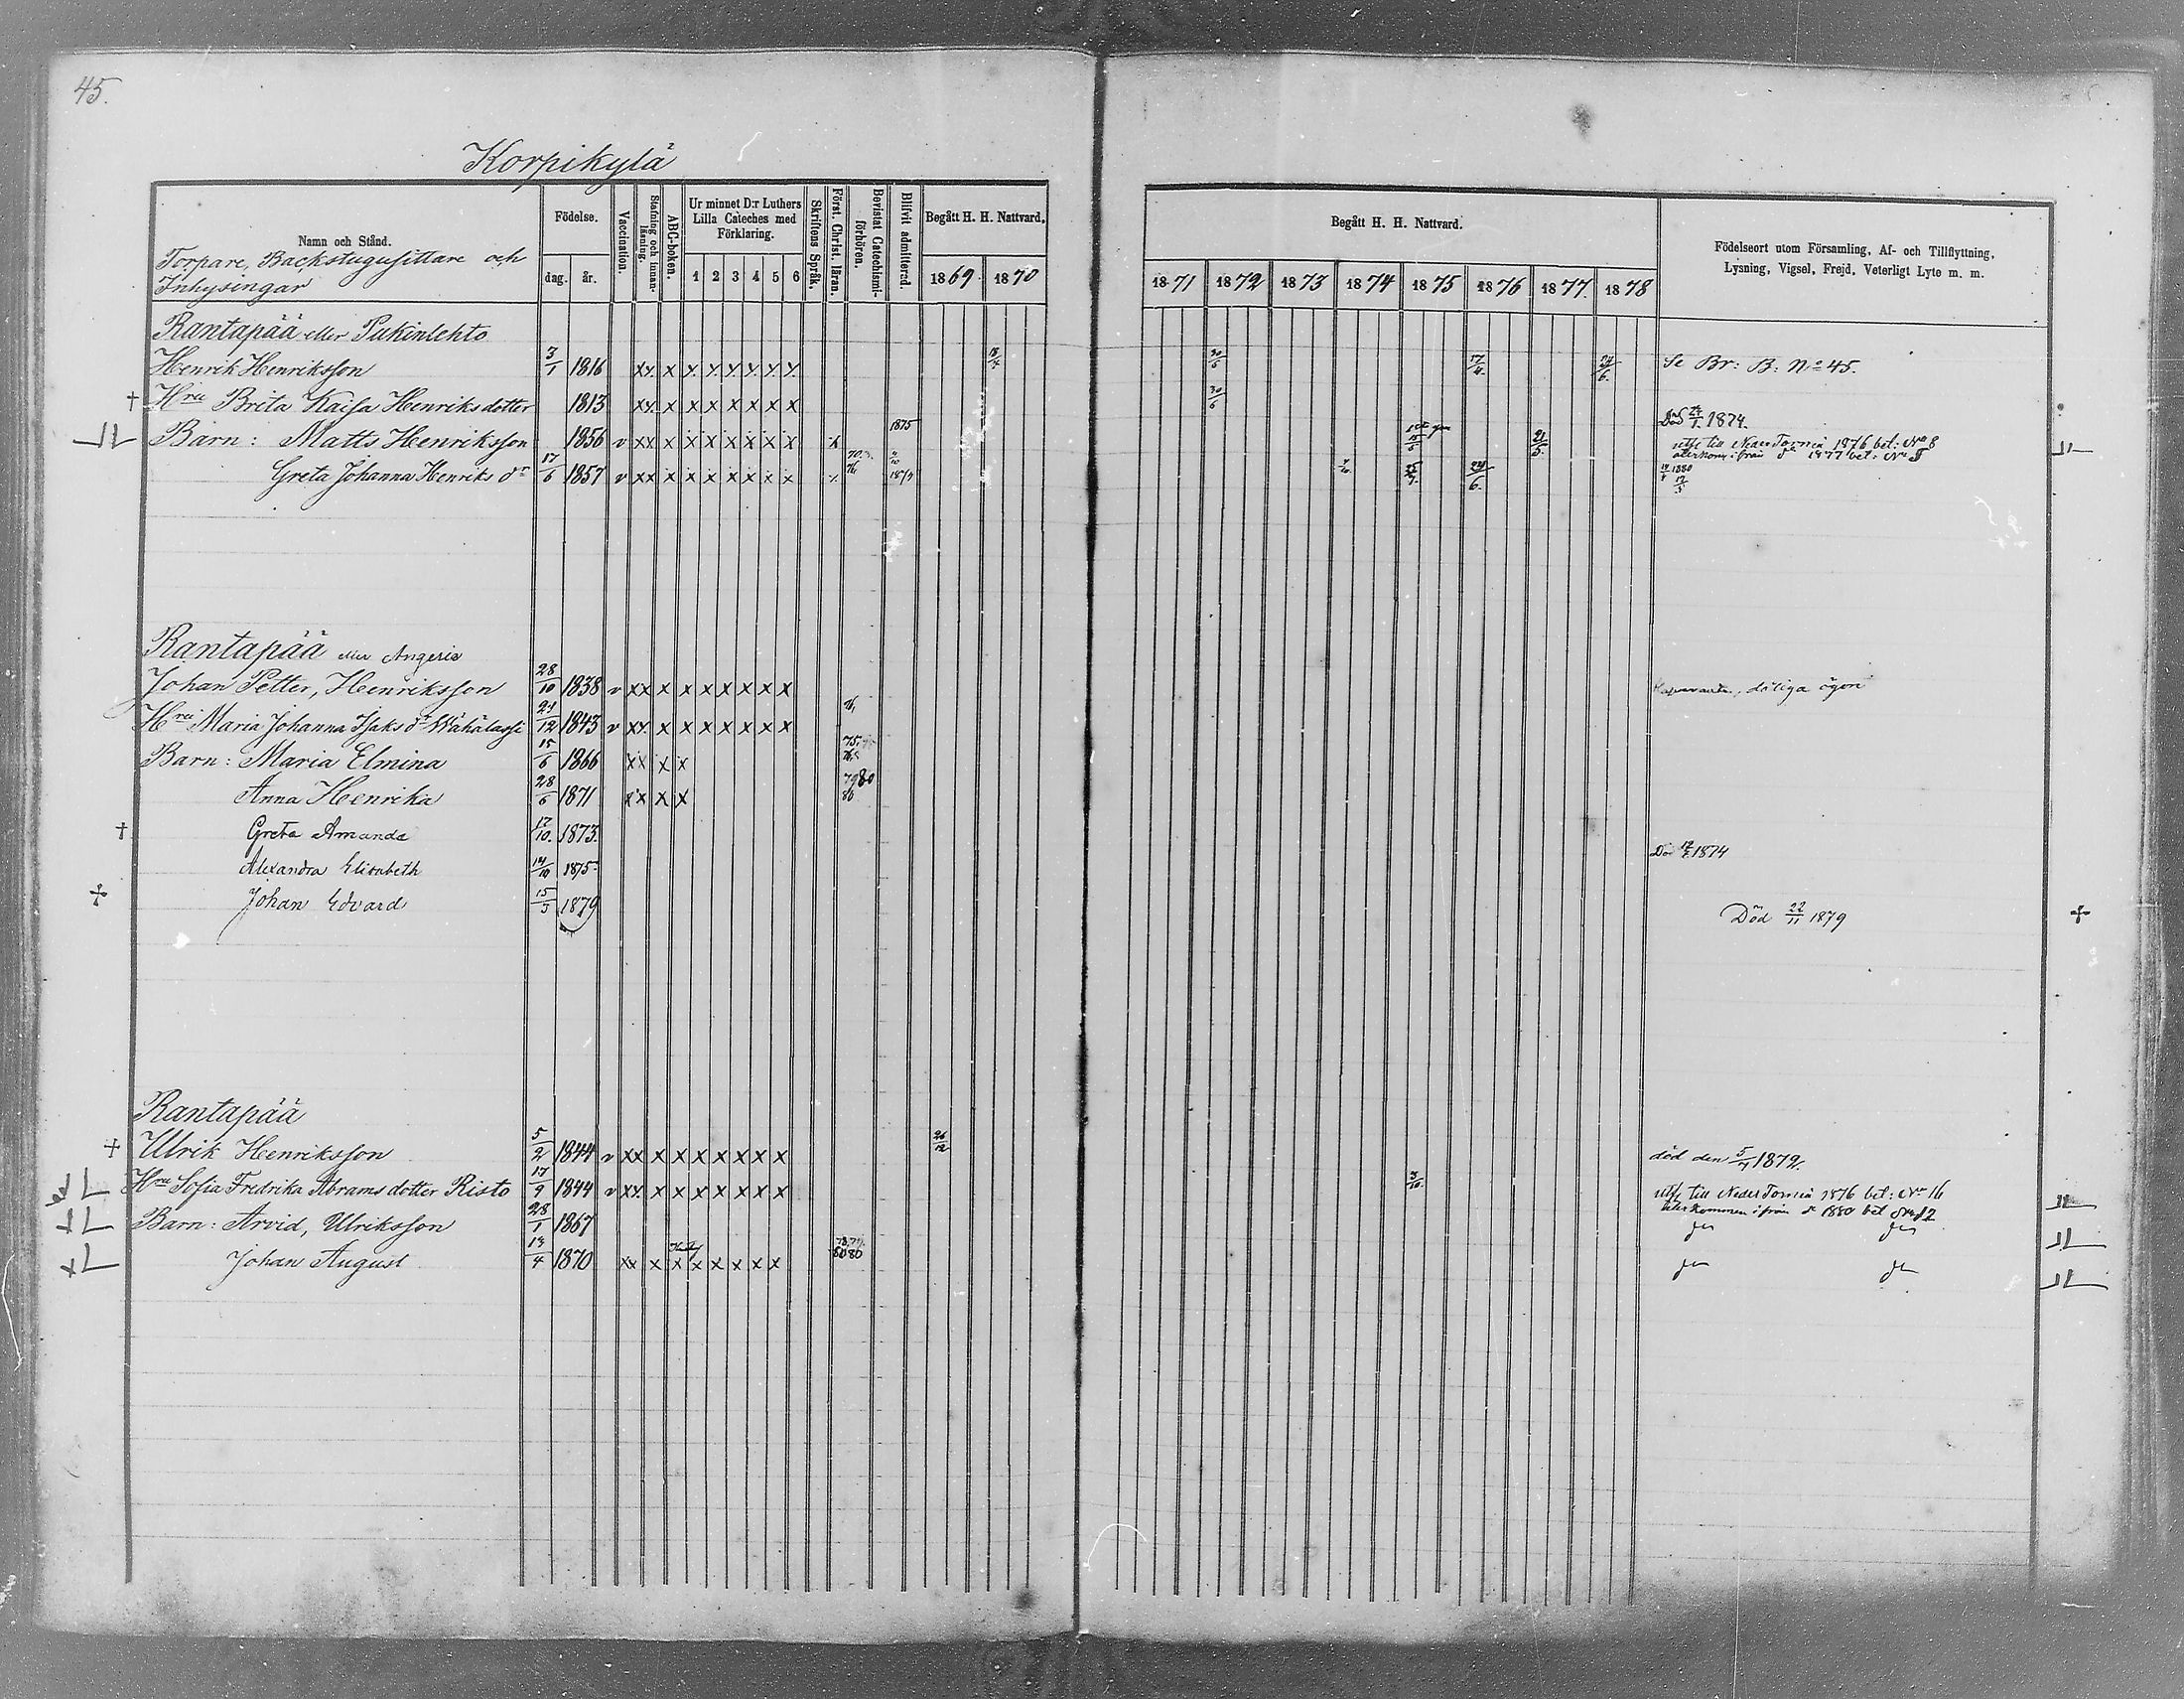 45.
Korpikylä
Namn och Stånd.
Torpare, Backstugusittare och
Inhysingar
Födelse.
dag. år.
Vaccination.
Stafning och innan-
läsning.
ABC-boken.
Ur minnet D:r Luthers
Lilla Cateches med
Förklaring.
1 2 3 4 5 6
Skriftens Språk.
Först. Christ. läran.
Bevistat Catechismi-
förhören.
Blifvit admitterad.
Begått H. H. Nattvard.
1869. 1870
Begått H. H. Nattvard.
1871 1872 1873 1874 1875 1876 1877. 1878
Födelseort utom Församling, Af- och Tillflyttning,
Lysning, Vigsel, Frejd, Veterligt Lyte m. m.
Rantapää eller Pukinlehto
Henrik Henriksson 3/1 1816 xx x x x x x x x 30/6 17/4. 24/6. Se Br: B: No 45.
† Hru Brita Kaisa Henriks dotter 1813 xx x x x x x x x 30/6 Död 1874.
Barn: Matts Henriksson 1856 v xx x x x x x x x 1875 21/5. utfl till Neder Torneå 1876 bet: No 8
återkom ifrån do 1877 bet: No
Greta Johanna Henriks dr 17/6 1857 v xx x x x x x x x 76. 24/6. 1880
Rantapää eller Angeria
Johan Petter, Henriksson 28/10 1838 v xx x x x x x x x dåliga ögon
Hru Maria Johanna Isaks dr Wähälassi 21/12 1843 v xx x x x x x x x 76.
Barn: Maria Elmina 15/6 1866 xx x x 75.
Anna Henrika 28/6 1871 xx x x 79 80
80
† Greta Amanda 17/10. 1873. Död 1874
Alexandra Elisabeth 14/10 1875
+ Johan Edvard 15/3 1879 Död 22/11 1879 +
Rantapää
† Ulrik Henriksson 5/2 1844 v xx x x x x x x x 26/12 död den 1872.
Hru Sofia Fredrika Abrams dotter Risto 17/9 1844 v xx x x x x x x x 3/10. utfl till Neder Torneå 1876 bet: No 16
återkommen ifrån do 1880 bet No 12
Barn: Arvid, Ulriksson 28/1 1867
Johan August 13/4 1870 xx x x x x x x x 78. 79.
80 80